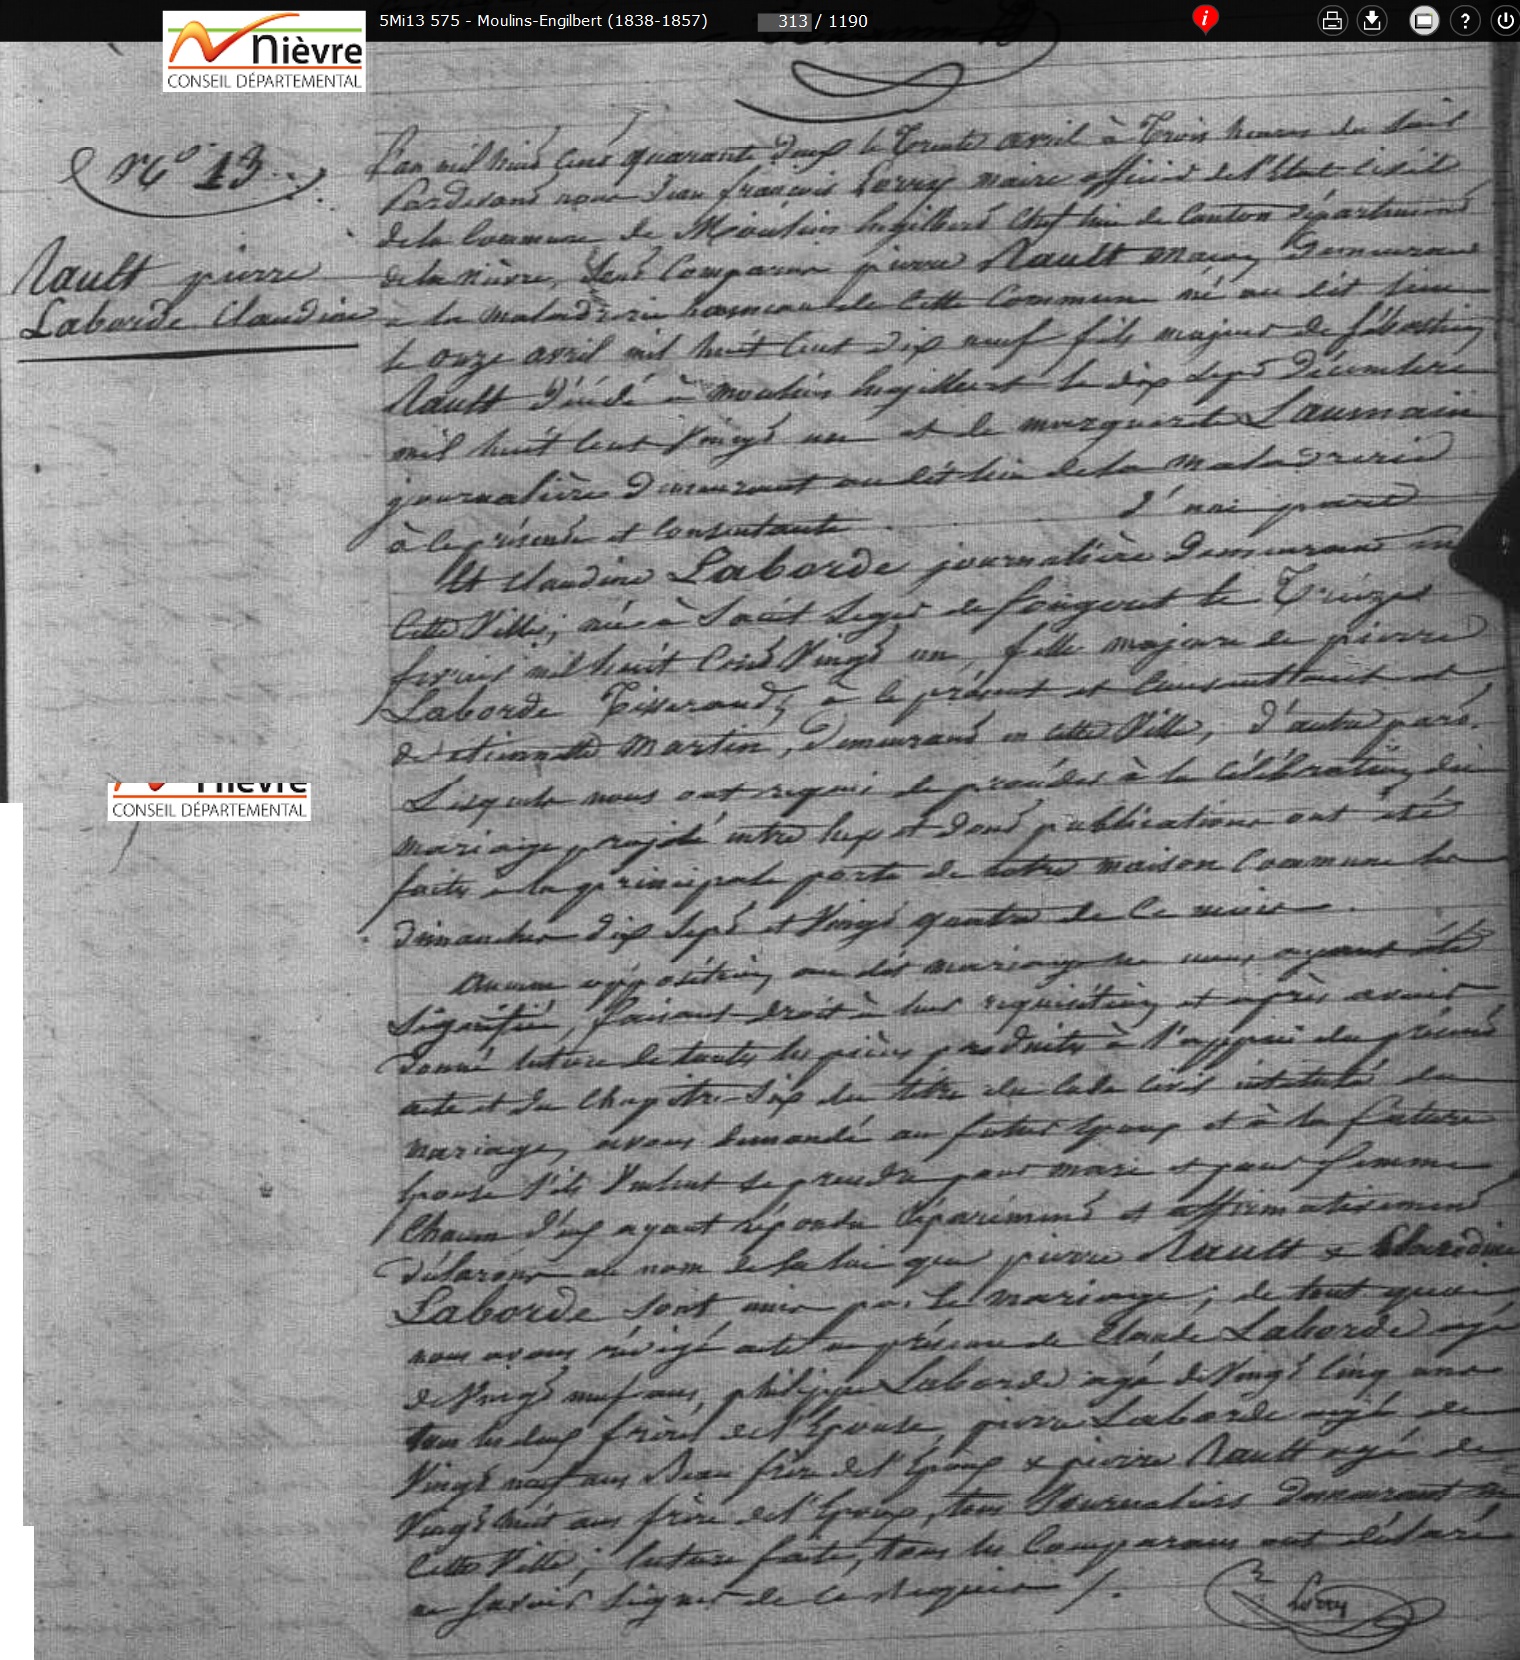 5Mi13 575 - Moulins-Engilbert (1838-1857)
313 / 1190
Nièvre
CONSEIL DÉPARTEMENTAL
N° 13
Rault pierre
Laborde Claudine
L'an mil huit cent quarante deux le Trente avril à Trois heures du soir
Pardevant nous Jean françois Lorry maire officier de l'Etat Civil
de la Commune de Moulins Engilbert Chef lieu de Canton département
de la Nièvre, Sont Comparus pierre Rault demeurant
à la maladrerie hameau de cette Commune né au dit lieu
le onze avril mil huit cent dix neuf fils majeur de sébastien
Rault décédé à moulins Engilbert le dix sept Décembre
mil huit cent Vingt un et de marguerite Laumain
journalière demeurant au dit lieu de la maladrerie
à ce présente et consentante d'une part
Et Claudine Laborde journalière demeurant en
cette Ville, née à Saint Leger de fougeret le Treize
fevrier mil huit cent Vingt un, fille majeure de pierre
Laborde Tisserand, à ce présent et consentant et
de etiennette Martin, demeurant en cette Ville, d'autre part.
Lesquels nous ont requis de procéder à la célébration du
mariage projeté entre eux et dont publications ont été
faites à la principale porte de notre maison Commune les
dimanches dix sept et Vingt quatre de ce mois.
Aucune opposition au dit mariage ne nous ayant été
signifiée, faisant droit à leur réquisition et après avoir
donné lecture de toutes les pièces produites à l'appui du présent
acte et du Chapitre Six du titre du Code Civil intitulé du
mariage, avons demandé au futur Epoux et à la future
Epouse s'ils Veulent se prendre pour mari et pour femme
Chacun d'eux ayant répondu séparément et affirmativement
déclarons au nom de la loi que pierre Rault & Claudine
Laborde sont unis par le mariage; de tout quoi
nous avons rédigé acte en présence de Claude Laborde agé
de Vingt neuf ans, philippe Laborde agé de Vingt Cinq ans
tous les deux frères de l'Epouse, pierre Laborde agé de
Vingt neuf ans Beau frère de l'Epoux & pierre Rault agé de
Vingt huit ans frère de l'Epoux, tous Journaliers demeurant en
cette Ville; lecture faite, tous les Comparans ont déclaré
ne savoir signer de ce Requis /.
Lorry
Nièvre
CONSEIL DÉPARTEMENTAL